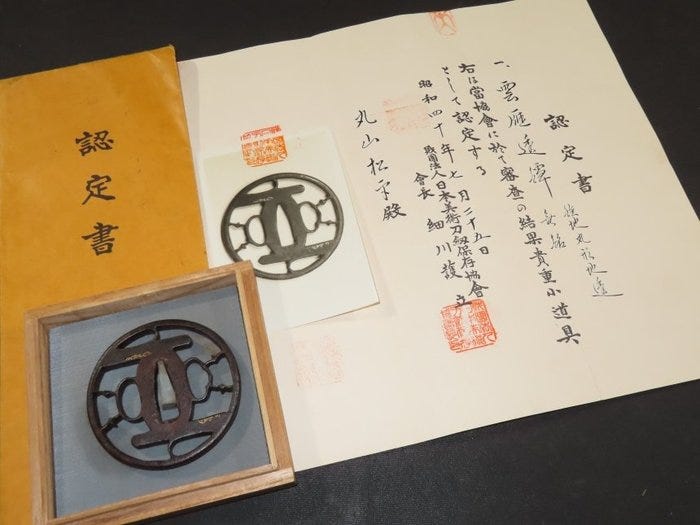 認定書
認定書
一、雲雁透鐔 無銘
鉄地丸形地透
右は當協會に於て審査の結果貴重小道具
として認定する
昭和四十年七月二十五日
財團法人日本美術刀劍保存協會
會長 細川護立
丸山松平殿